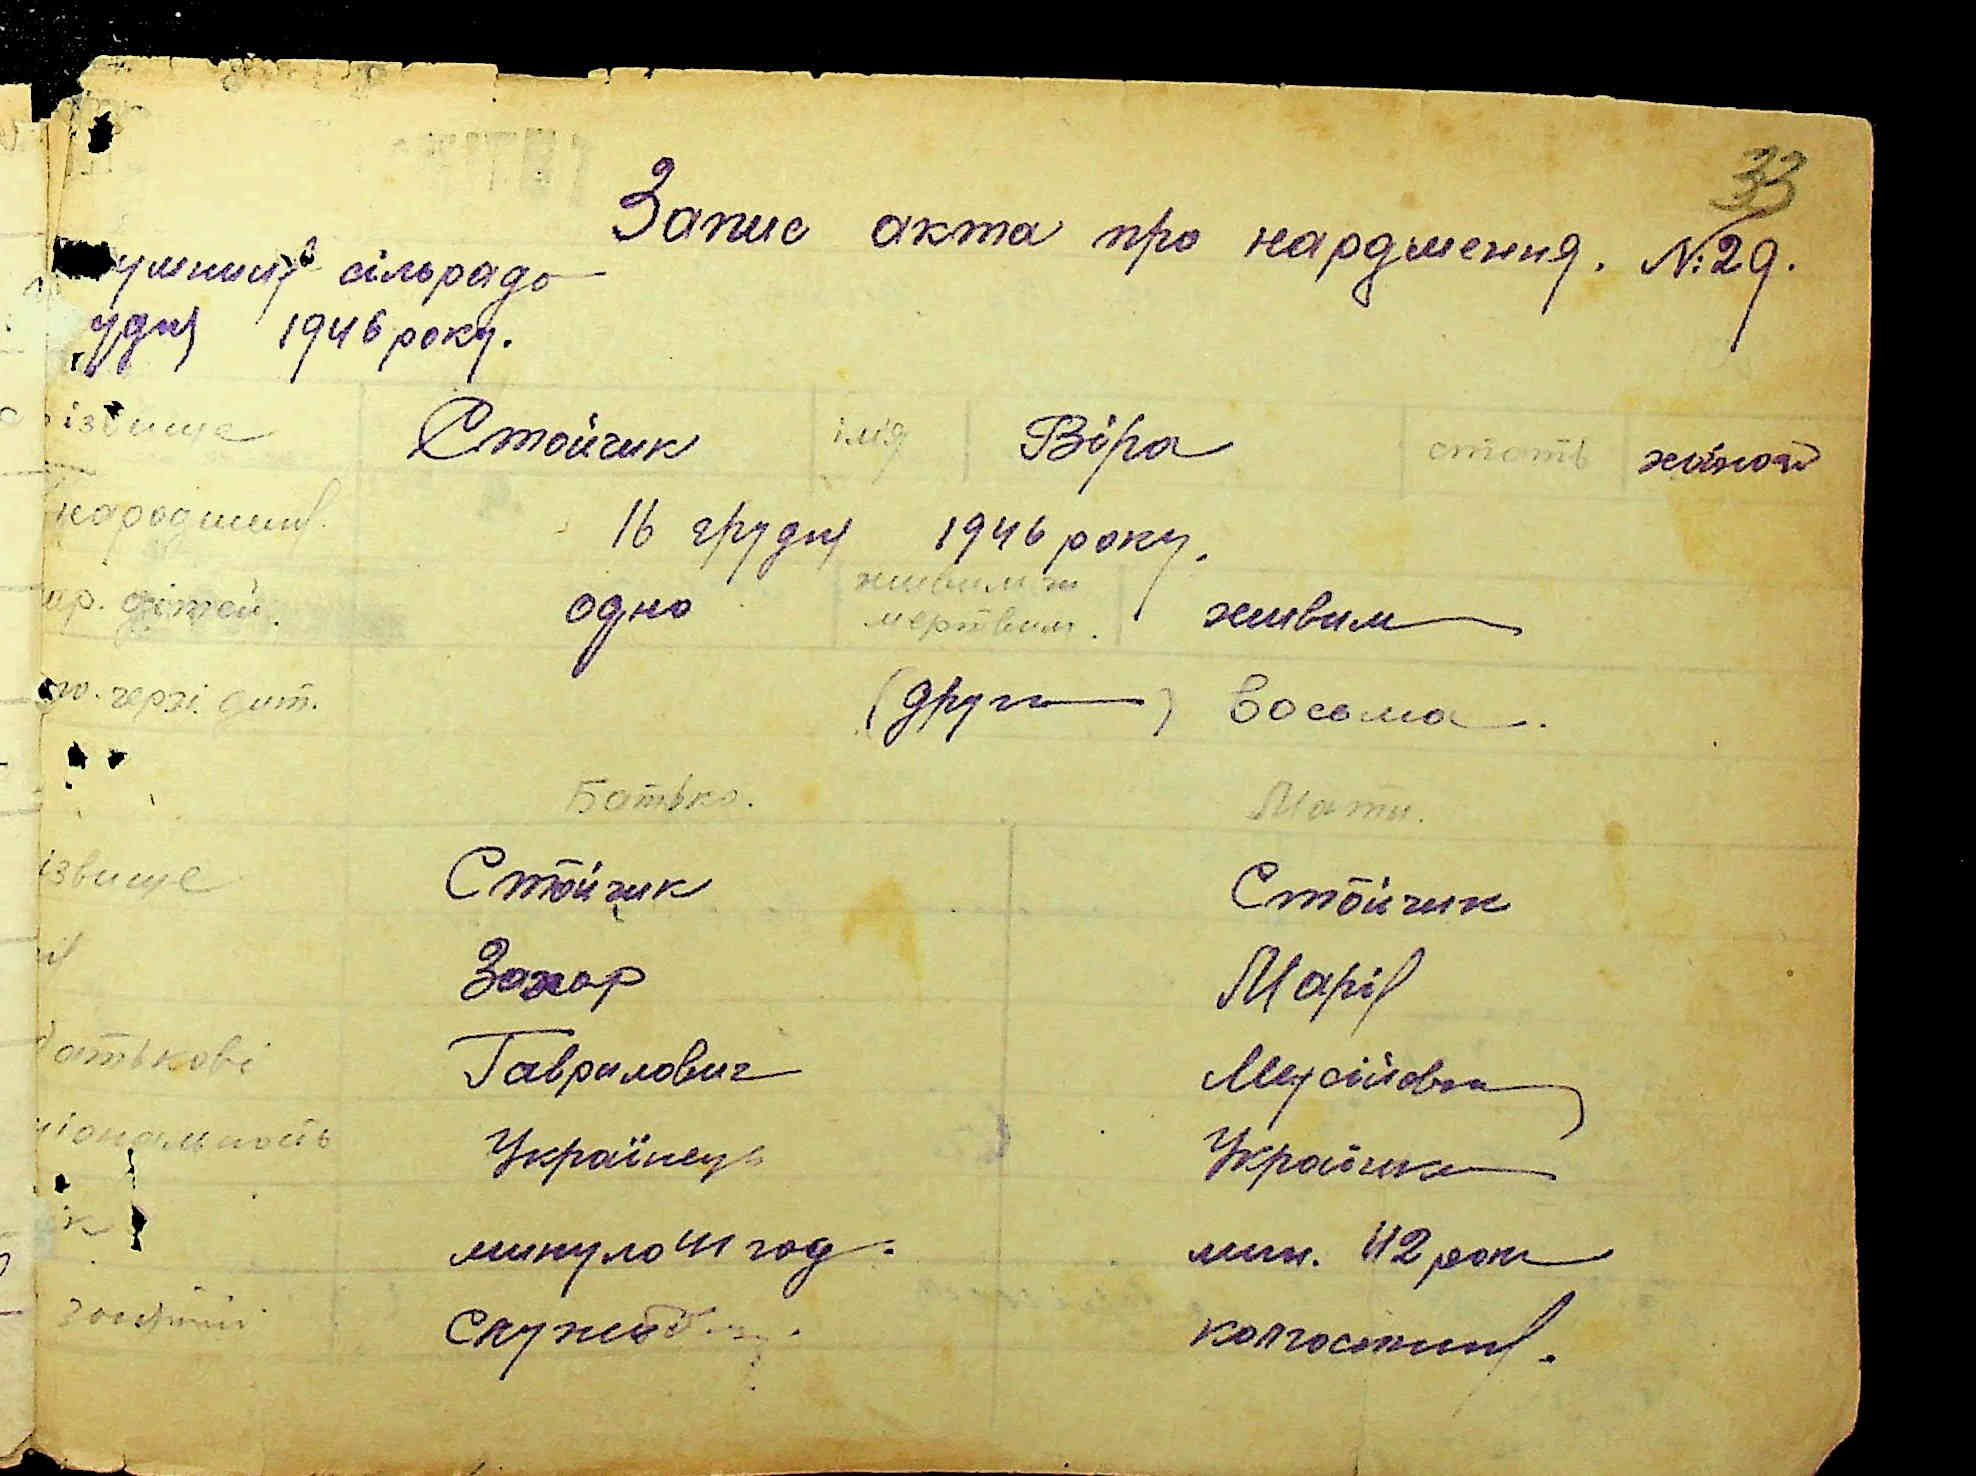 33
Запис акта про нардження. №29.
сільрада
удня 1946 року.
ізвище Стойчик ім'я Віра стать жіноч
народження. 16 грудня 1946 року.
нар. дітей. одно живим чи мертвим. живим
по черзі дит. (друга) восьма.
Батько. Мати.
ізвище Стойчик Стойчик
Захар Марія
батькові Гаврилович Мусіївна
ціональность Українець Українка
ік минуло 41 год. мин. 42 роки
колгоспниця.